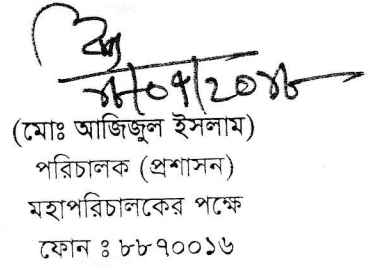 ১৮/০৭/২০১৮
(মোঃ আজিজুল ইসলাম)
পরিচালক (প্রশাসন)
মহাপরিচালকের পক্ষে
ফোন ঃ ৮৮৭০০১৬